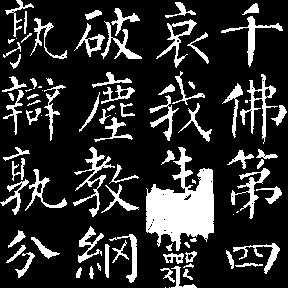 千佛第四
哀我生靈
破塵教網
孰辯孰分